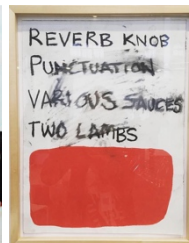 REVERB KNOB
PUNCTUATION
VARIOUS SAUCES
TWO LAMBS